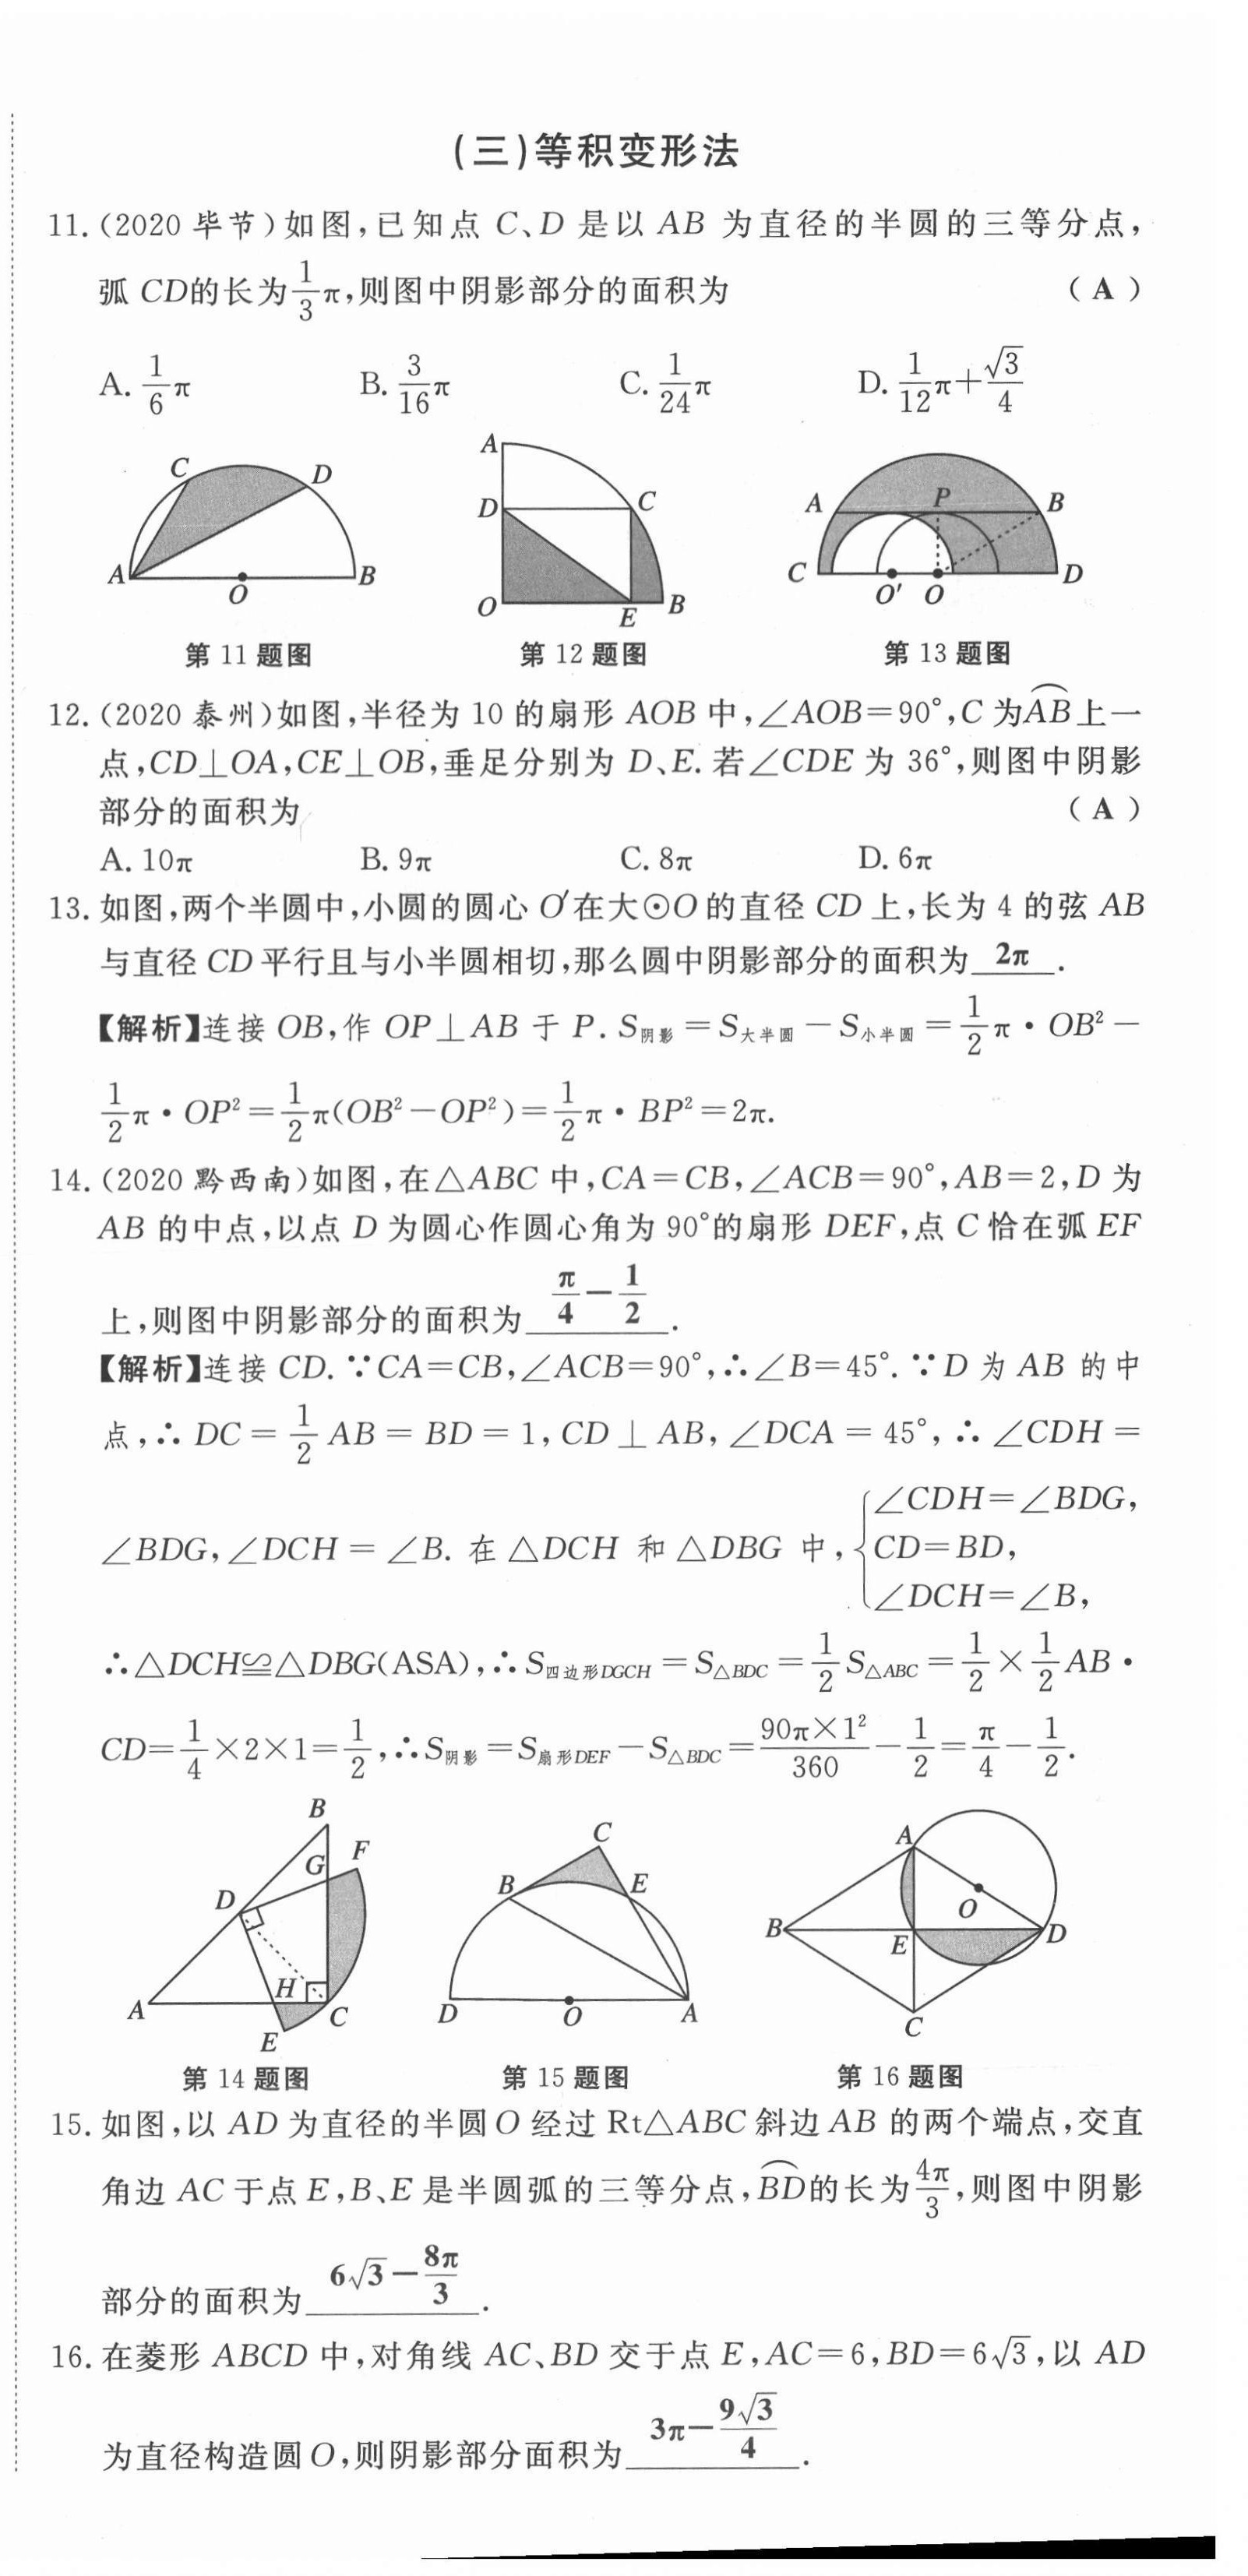 (三)等积变形法
11.(2020 毕节)如图,已知点 C、D 是以 AB 为直径的半圆的三等分点,
弧 CD的长为1/3π,则图中阴影部分的面积为 ( A )
A. 1/6π B. 3/16π C. 1/24π D. 1/12π+√3/4
C D A O B
A D C O E B
A P B C O′ O D
第 11 题图 第 12 题图 第 13 题图
12.(2020 泰州)如图,半径为 10 的扇形 AOB 中,∠AOB=90°,C 为A͡B上一
点,CD⊥OA,CE⊥OB,垂足分别为 D、E. 若∠CDE 为 36°,则图中阴影
部分的面积为 ( A )
A. 10π B. 9π C. 8π D. 6π
13. 如图,两个半圆中,小圆的圆心 O′在大⊙O 的直径 CD 上,长为 4 的弦 AB
与直径 CD 平行且与小半圆相切,那么圆中阴影部分的面积为 2π .
【解析】连接 OB,作 OP⊥AB 于 P. S阴影=S大半圆−S小半圆=1/2π·OB²−
1/2π·OP²=1/2π(OB²−OP²)=1/2π·BP²=2π.
14.(2020 黔西南)如图,在△ABC 中,CA=CB,∠ACB=90°,AB=2,D 为
AB 的中点,以点 D 为圆心作圆心角为 90°的扇形 DEF,点 C 恰在弧 EF
上,则图中阴影部分的面积为 π/4−1/2 .
【解析】连接 CD. ∵CA=CB,∠ACB=90°,∴∠B=45°. ∵D 为 AB 的中
点,∴DC=1/2AB=BD=1,CD⊥AB,∠DCA=45°,∴∠CDH=
∠BDG,∠DCH=∠B. 在△DCH 和△DBG 中,{∠CDH=∠BDG,
CD=BD,
∠DCH=∠B,
∴△DCH≌△DBG(ASA),∴S四边形DGCH=S△BDC=1/2S△ABC=1/2×1/2AB·
CD=1/4×2×1=1/2,∴S阴影=S扇形DEF−S△BDC=90π×1²/360−1/2=π/4−1/2.
B G F D H A E C
C B E D O A
A O B E D C
第 14 题图 第 15 题图 第 16 题图
15. 如图,以 AD 为直径的半圆 O 经过 Rt△ABC 斜边 AB 的两个端点,交直
角边 AC 于点 E,B、E 是半圆弧的三等分点,B͡D的长为4π/3,则图中阴影
部分的面积为 6√3−8π/3 .
16. 在菱形 ABCD 中,对角线 AC、BD 交于点 E,AC=6,BD=6√3,以 AD
为直径构造圆 O,则阴影部分面积为 3π−9√3/4 .